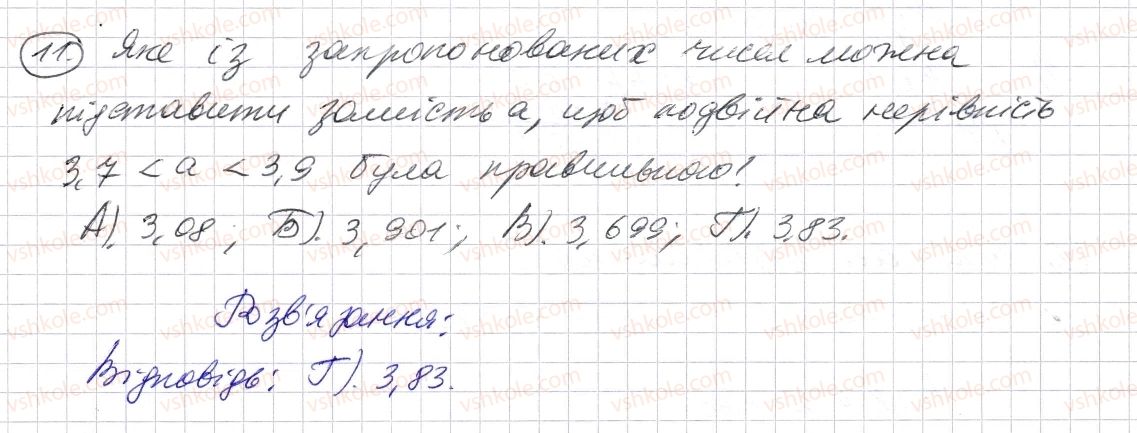 11. Яке із запропонованих чисел можна
підставити замість а, щоб подвійна нерівність
3,7 < а < 3,9 була правильною?
А). 3,08; Б). 3,901; В). 3,699; Г). 3,83.
Розв'язання:
Відповідь: Г). 3,83.